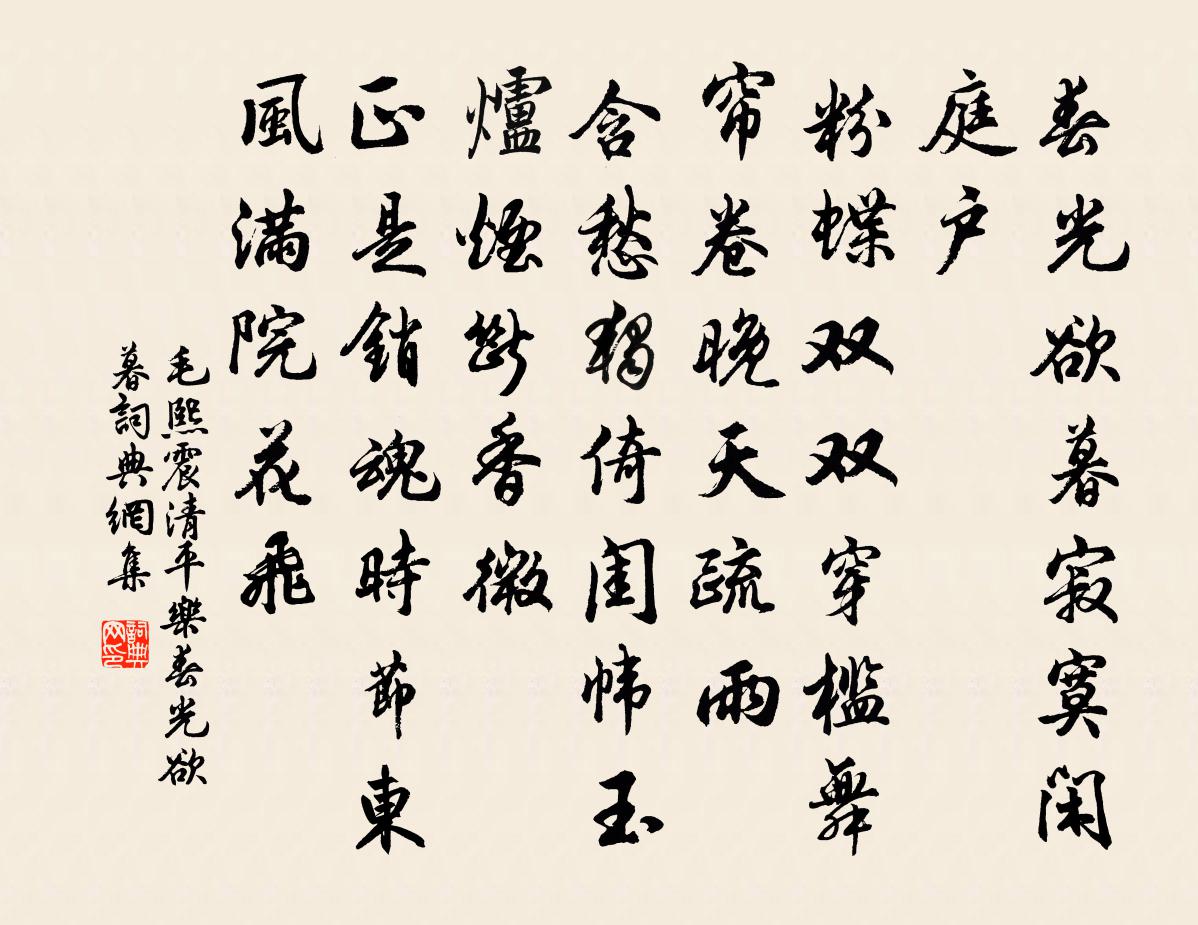 春光欲暮寂寞閑
庭户
粉蝶双双穿檻舞
帘卷晚天疏雨
含愁獨倚閨幃玉
爐煙斷香微
正是銷魂時節東
風滿院花飛
毛熙震清平樂春光欲
暮詞典網集
詞典
网印